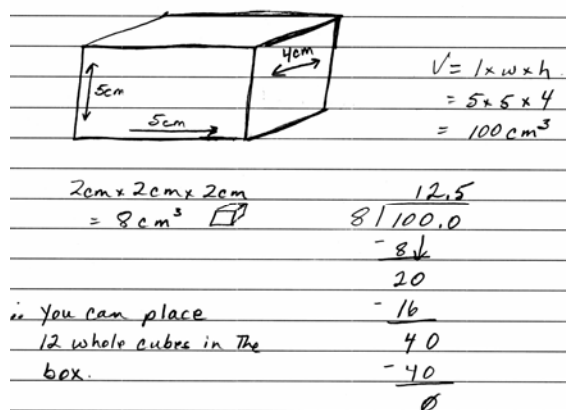 5cm
5cm
4cm
V = l x w x h
= 5 x 5 x 4
= 100 cm³
2cm x 2cm x 2cm
= 8 cm³
12.5
8 100.0
- 8↓
20
- 16
40
- 40
0
∴ You can place
12 whole cubes in the
box.